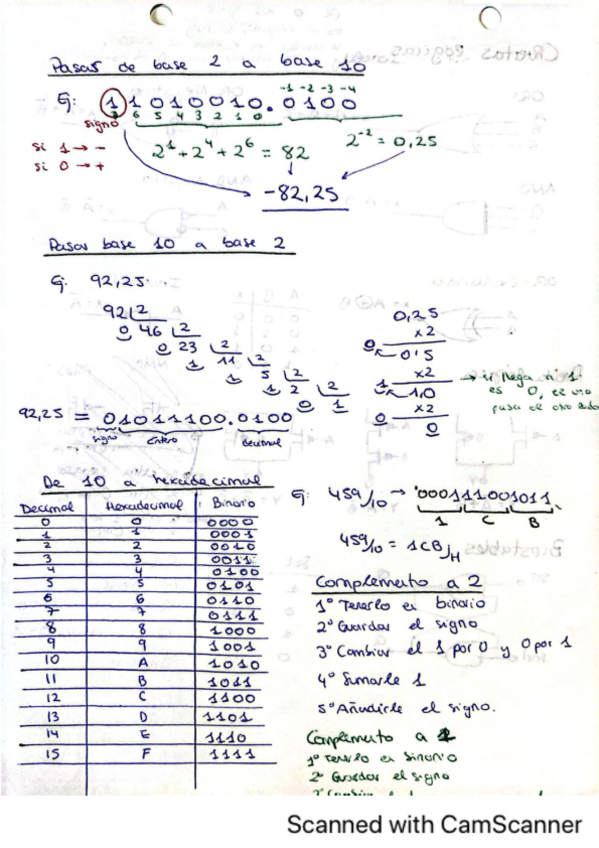 Pasar de base 2 a base 10
-1 -2 -3 -4
Ej: 11010010.0100
6 5 4 3 2 1 0
signo
si 1 → -
si 0 → +
2¹ + 2⁴ + 2⁶ = 82
2⁻² = 0,25
-82,25
Pasar base 10 a base 2
Ej: 92,25
92 2
0 46 2
0 23 2
1 11 2
1 5 2
1 2 2
0 1
0,25
x2
0 0'5
x2
1 1,0
x2
0 0
→ si llega a 1
es 0, el uno
pasa al otro lado
92,25 = 01011100.0100
signo entero decimal
De 10 a hexadecimal
Decimal Hexadecimal Binario
0 0 0000
1 1 0001
2 2 0010
3 3 0011
4 4 0100
5 5 0101
6 6 0110
7 7 0111
8 8 1000
9 9 1001
10 A 1010
11 B 1011
12 C 1100
13 D 1101
14 E 1110
15 F 1111
Ej: 459/10 → 000111001011
1 C B
459/10 = 1CB/H
Complemento a 2
1º Tenerlo en binario
2º Guardar el signo
3º Cambiar el 1 por 0 y 0 por 1
4º Sumarle 1
5º Añadirle el signo.
Complemento a 1
1º tenerlo en binario
2º Guardar el signo
Scanned with CamScanner